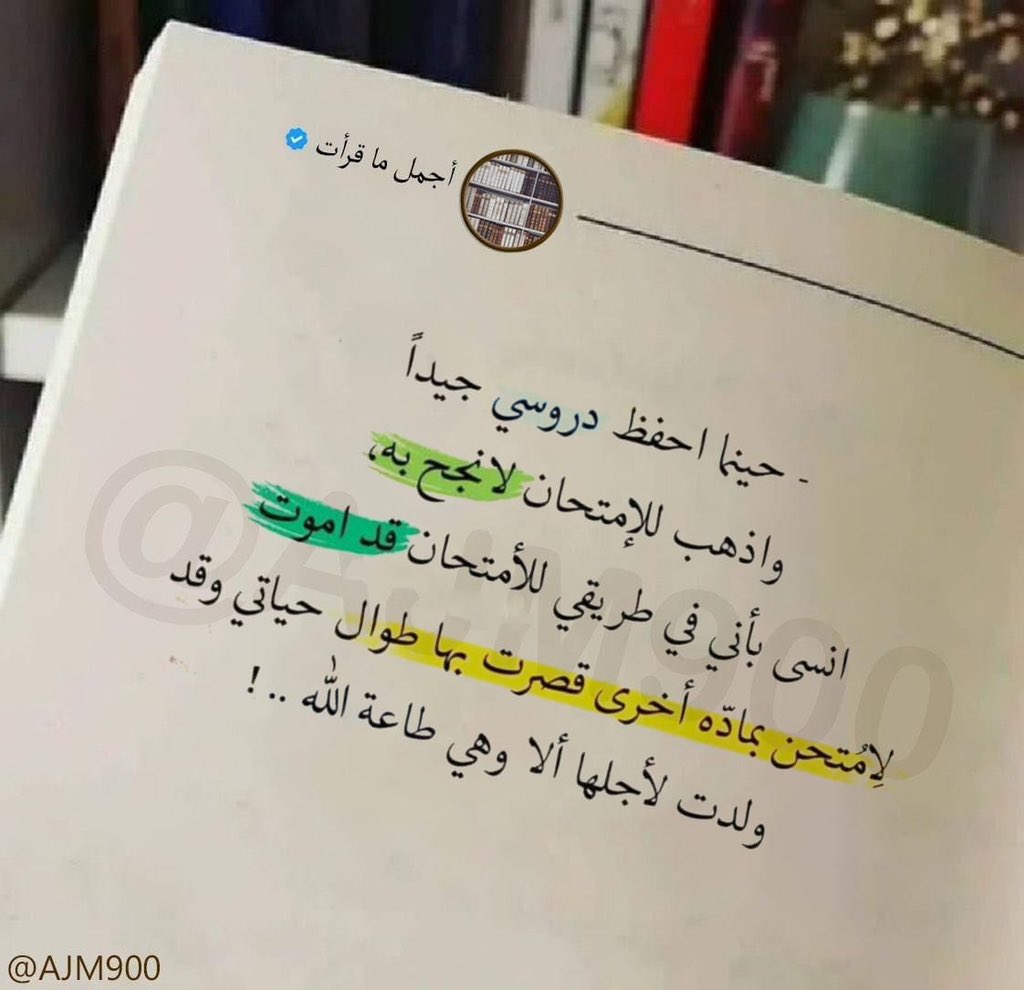 أجمل ما قرأت
- حينما احفظ دروسي جيداً
واذهب للإمتحان لانجح به،
انسى بأني في طريقي للأمتحان قد اموت
لِامُتحن بمادّه أخرى قصرت بها طوال حياتي وقد
ولدت لأجلها ألا وهي طاعة الله .. !
@AJM900
@AJM900